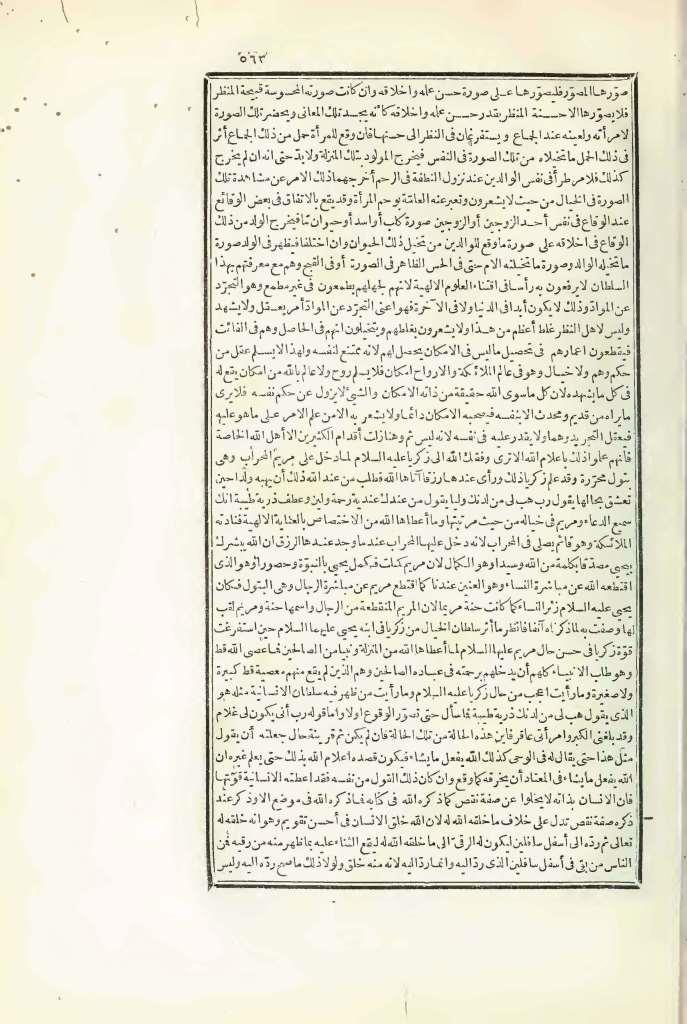 ٥٦٣
صوّرها المصوّر فليصوّرها على صورة حسن علمه واخلاقه وان كانت صورته المحسوسة قبيحة المنظر
فلا يصوّرها الاحسنة المنظر بقدر حسن علمه واخلاقه كأنه يجسد تلك المعانى ويحضر تلك الصورة
لامرأته ولعينه عند الجماع ويستفرغان فى النظر الى حسنها فان وقع للمرأة حمل من ذلك الجماع أثر
فى ذلك الحمل ما تخيلاه من تلك الصورة فى النفس فيخرج المولود بتلك المنزلة ولابدّ حتى انه ان لم يخرج
كذلك فلامر طرأ فى نفس الوالدين عند نزول النطفة فى الرحم أخرجهما ذلك الامر عن مشاهدة تلك
الصورة فى الخيال من حيث لا يشعرون وتعبر عنه العامّة بوحم المرأة وقد يقع بالاتفاق فى بعض الوقائع
عند الوقاع فى نفس أحد الزوجين أو الزوجين صورة كلب أو اسد أو حيوان ما فيخرج الولد من ذلك
الوقاع فى اخلاقه على صورة ما وقع للوالدين من تخيل ذلك الحيوان وان اختلفا فيظهر فى الولد صورة
ما تخيله الوالد وصورة ما تخيلته الام حتى فى الحس الظاهر فى الصورة أو فى القبح وهم مع معرفتهم بهذا
السلطان لا يرفعون به رأسا فى اقتناء العلوم الالهية لانهم لجهلهم يطمعون فى غير مطمع وهو التجرّد
عن الموادّ وذلك لا يكون أبدا فى الدنيا ولا فى الآخرة فهو اعنى التجرّد عن الموادّ أمر يعقل ولا يشهد
وليس لاهل النظر غلط أعظم من هذا ولا يشعرون بغلطهم ويتخيلون انهم فى الحاصل وهم فى الفائت
فيقطعون اعمارهم فى تحصيل ما ليس فى الامكان يحصل لهم لانه ممتنع لنفسه ولهذا لا يسلم عقل من
حكم وهم ولا خيال وهو فى عالم الملائكة والارواح امكان فلا يسلم روح ولا عالم بالله من امكان يقع له
فى كل ما يشهده لان كل ما سوى الله حقيقة من ذاته الامكان والشىء لا يزول عن حكم نفسه فلا يرى
ما يراه من قديم ومحدث الا بنفسه فيصحبه الامكان دائما ولا يشعر به الا من علم الامر على ما هو عليه
فيعقل التجريد وهما ولا يقدر عليه فى نفسه لانه ليس ثم وهنا زلت أقدام الكثيرين الا أهل الله الخاصة
فانهم علموا ذلك باعلام الله الاترى وفقك الله الى زكريا عليه السلام لما دخل على مريم المحراب وهى
بتول محرّرة وقد علم زكريا ذلك ورأى عندها رزقا آتاها الله فطلب من عند الله ذلك أن يهبه ولدا حين
تعشق بحالها يقول رب هب لى من لدنك وليا يقول من عندك عندية رحمة ولين وعطف ذرية طيبة انك
سميع الدعاء ومريم فى خياله من حيث مرتبتها وما أعطاها الله من الاختصاص بالعناية الالهية فنادته
الملائكة وهو قائم يصلى فى المحراب لانه دخل عليها المحراب عند ما وجد عندها الرزق ان الله يبشرك
بيحيى مصدّقا بكلمة من الله وسيدا وهو الكمال لان مريم كملت فكمل يحيى بالنبوّة وحصورا وهو الذى
اقتطعه الله عن مباشرة النساء وهو العنين عندنا كما اقتطع مريم عن مباشرة الرجال وهى البتول فكان
يحيى عليه السلام زير النساء كما كانت حنة مريما لان المريم المنقطعة من الرجال واسمها حنة ومريم لقب
لها وصفت به لما ذكرناه آنفا فانظر ما أثر سلطان الخيال من زكريا فى ابنه يحيى عليهما السلام حين استفرغت
قوّة زكريا فى حسن حال مريم عليها السلام لما أعطاها الله من المنزلة ونبيا من الصالحين فما عصى الله قط
وهو طلب الانبياء كلهم أن يدخلهم برحمته فى عباده الصالحين وهم الذين لم يقع منهم معصية قط كبيرة
ولا صغيرة وما رأيت اعجب من حال زكريا عليه السلام وما رأيت من ظهر فيه سلطان الانسانية مثله هو
الذى يقول هب لى من لدنك ذرية طيبة فما سأل حتى تصوّر الوقوع اولا واما قوله رب أنى يكون لى غلام
وقد بلغنى الكبر وامرأتى عاقر فأين هذه الحالة من تلك الحالة فان لم يكن ثم قرينة حال جعلته أن يقول
مثل هذا حتى يقال له فى الوحى كذلك الله يفعل ما يشاء فيكون قصده اعلام الله بذلك حتى يعلم غيره ان
الله يفعل ما يشاء فى المعتاد أن يخرقه كما وقع وان كان ذلك القول من نفسه فقد اعطته الانسانية قوّتها
فان الانسان بذاته لا يخلو عن صفة نقص كما ذكره الله فى كتابه فما ذكره الله فى موضع الا وذكر عند
ذكره صفة نقص تدل على خلاف ما خلقه الله له لان الله خلق الانسان فى أحسن تقويم وهو انه خلقه له
تعالى ثم ردّه الى أسفل سافلين ليكون له الرقىّ الى ما خلقه الله له ليقع الثناء عليه بما ظهر منه من رقيه فمن
الناس من بقى فى أسفل سافلين الذى ردّ اليه وانما ردّ اليه لانه منه خلق ولولا ذلك ما صح ردّه اليه وليس